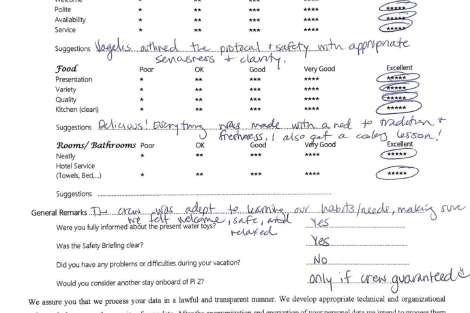 Welcome * ** *** **** *****
Polite * ** *** **** *****
Availability * ** *** **** *****
Service * ** *** **** *****
Suggestions Vagelis outlined the protocol & safety with appropriate
seriousness & clarity.
Food Poor OK Good Very Good Excellent
Presentation * ** *** **** *****
Variety * ** *** **** *****
Quality * ** *** **** *****
Kitchen (clean) * ** *** **** *****
Suggestions Delicious! Everything was made with a nod to tradition +
freshness, I also got a cooking lesson!
Rooms/ Bathrooms Poor OK Good Very Good Excellent
Neatly * ** *** **** *****
Hotel Service
(Towels, Bed,...) * ** *** **** *****
Suggestions
General Remarks The crew was adept to learning our habits/needs, making sure
we felt welcome, safe, and
relaxed
Were you fully informed about the present water toys? Yes
Was the Safety Briefing clear? Yes
Did you have any problems or difficulties during your vacation? No
Would you consider another stay onboard of Pi 2? only if crew guaranteed ☺
We assure you that we process your data in a lawful and transparent manner. We develop appropriate technical and organizational